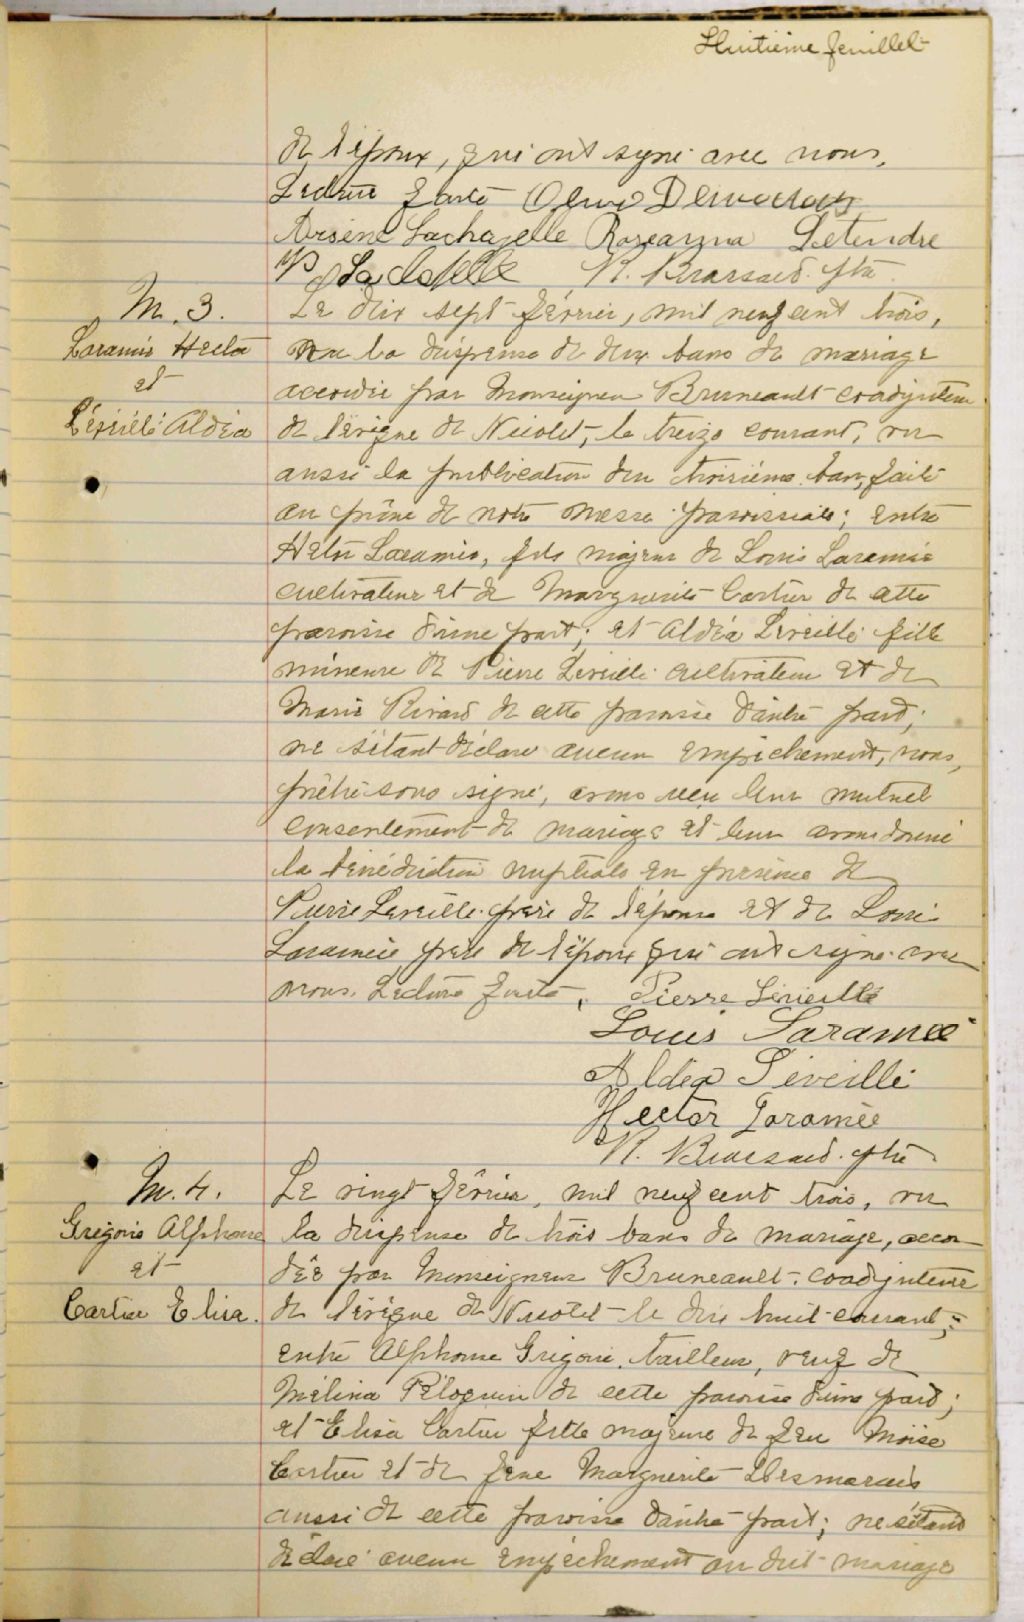 Huitième feuillet
de l'époux, qui ont signé avec nous,
Lecture faite
Arsène Lachapelle Roseanna Letendre
R. Brassard. ptre
M. 3.
Laramée Hector
et
Léveillé Aldéa
Le dix sept février, mil neuf cent trois,
vu la dispense de deux bans de mariage
accordée par Monseigneur Bruneault coadjuteur
de l'évêque de Nicolet, le treize courant, vu
aussi la publication du troisième ban, faite
au prône de notre messe paroissiale; entre
Hector Laramée, fils majeur de Louis Laramée
cultivateur et de Marguerite Cartier de cette
paroisse d'une part; et Aldéa Léveillé fille
mineure de Pierre Léveillé cultivateur et de
Marie Rivard de cette paroisse d'autre part;
ne s'étant déclaré aucun empêchement, nous,
prêtre sous signé, avons reçu leur mutuel
consentement de mariage et leur avons donné
la bénédiction nuptiale en présence de
Pierre Léveillé père de l'épouse et de Louis
Laramée père de l'époux qui ont signé avec
nous. Lecture faite, Pierre Léveillé
Louis Laramée
Aldéa Léveillé
Hector Laramée
R. Brassard. ptre
M. 4.
Grégoire Alphonse
et
Cartier Elisa.
Le vingt février, mil neuf cent trois, vu
la dispense de trois bans de mariage, accor
dée par Monseigneur Bruneault. coadjuteur
de l'évêque de Nicolet le dix huit courant;
entre Alphonse Grégoire, tailleur, veuf de
Mélina Péloquin de cette paroisse d'une part;
et Elisa Cartier fille majeure de feu Moïse
Cartier et de feue Marguerite Desmarais
aussi de cette paroisse d'autre part; ne s'étant
déclaré aucun empêchement au dit mariage